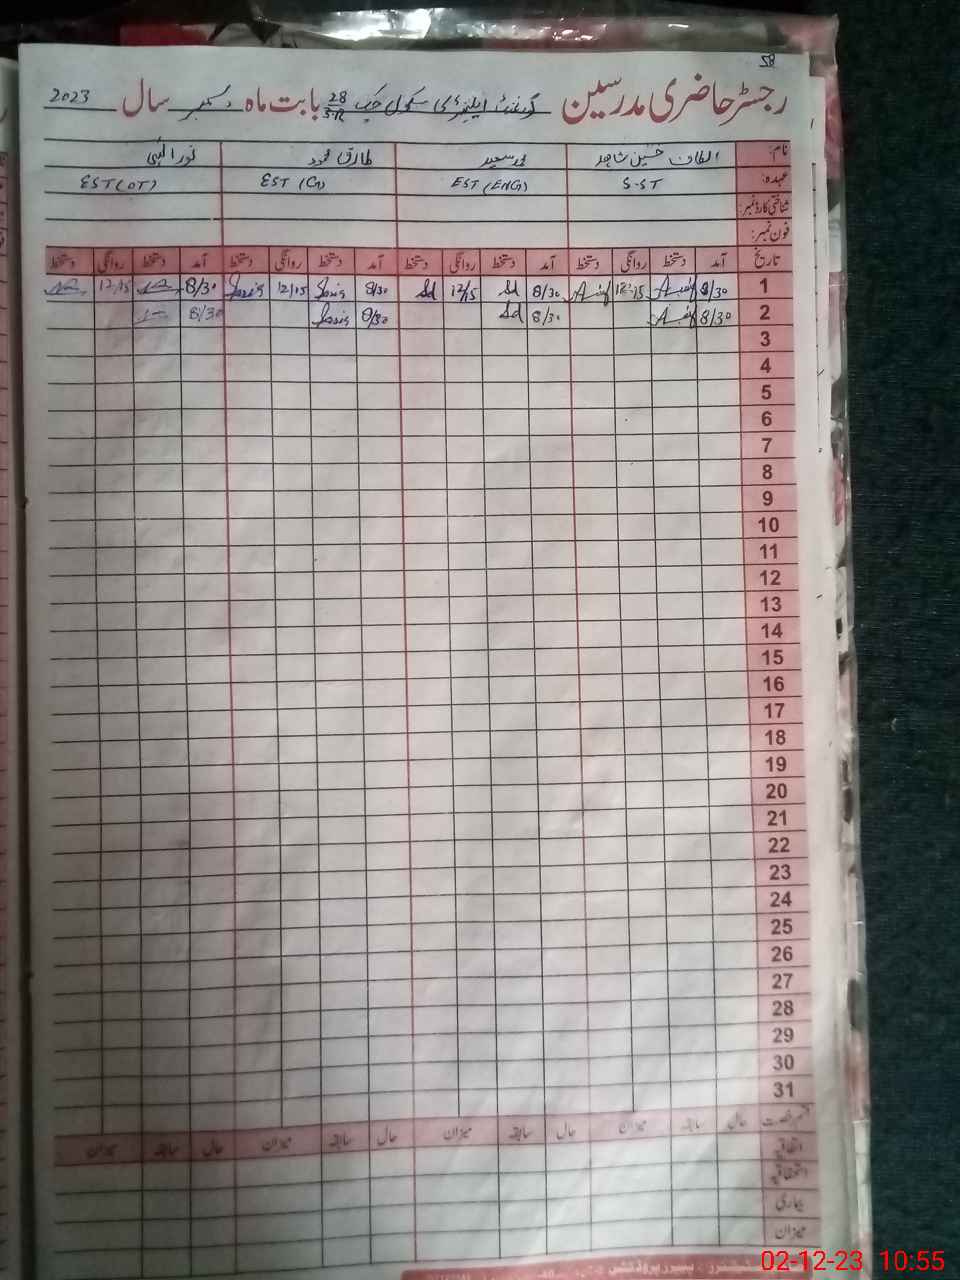 58
رجسٹر حاضری مدرسین گورنمنٹ ایلیمنٹری سکول چک 28/3-R بابت ماہ دسمبر سال 2023
نام: الطاف حسین شاہد محمد سعید طارق محمود نور الٰہی
عہدہ: S-ST EST (ENG) EST (G) EST (OT)
شناختی کارڈ نمبر:
فون نمبر:
تاریخ آمد دستخط روانگی دستخط آمد دستخط روانگی دستخط آمد دستخط روانگی دستخط آمد دستخط روانگی دستخط
1 8/30 12:15 8/30 Sd 12/15 Sd 8/30 12/15 8/30 12/15
2 8/30 8/30 Sd 8/30 8/30
3
4
5
6
7
8
9
10
11
12
13
14
15
16
17
18
19
20
21
22
23
24
25
26
27
28
29
30
31
قسم رخصت حال سابقہ میزان حال سابقہ میزان حال سابقہ میزان حال سابقہ میزان
اتفاقیہ
استحقاقیہ
بیماری
میزان
02-12-23 10:55